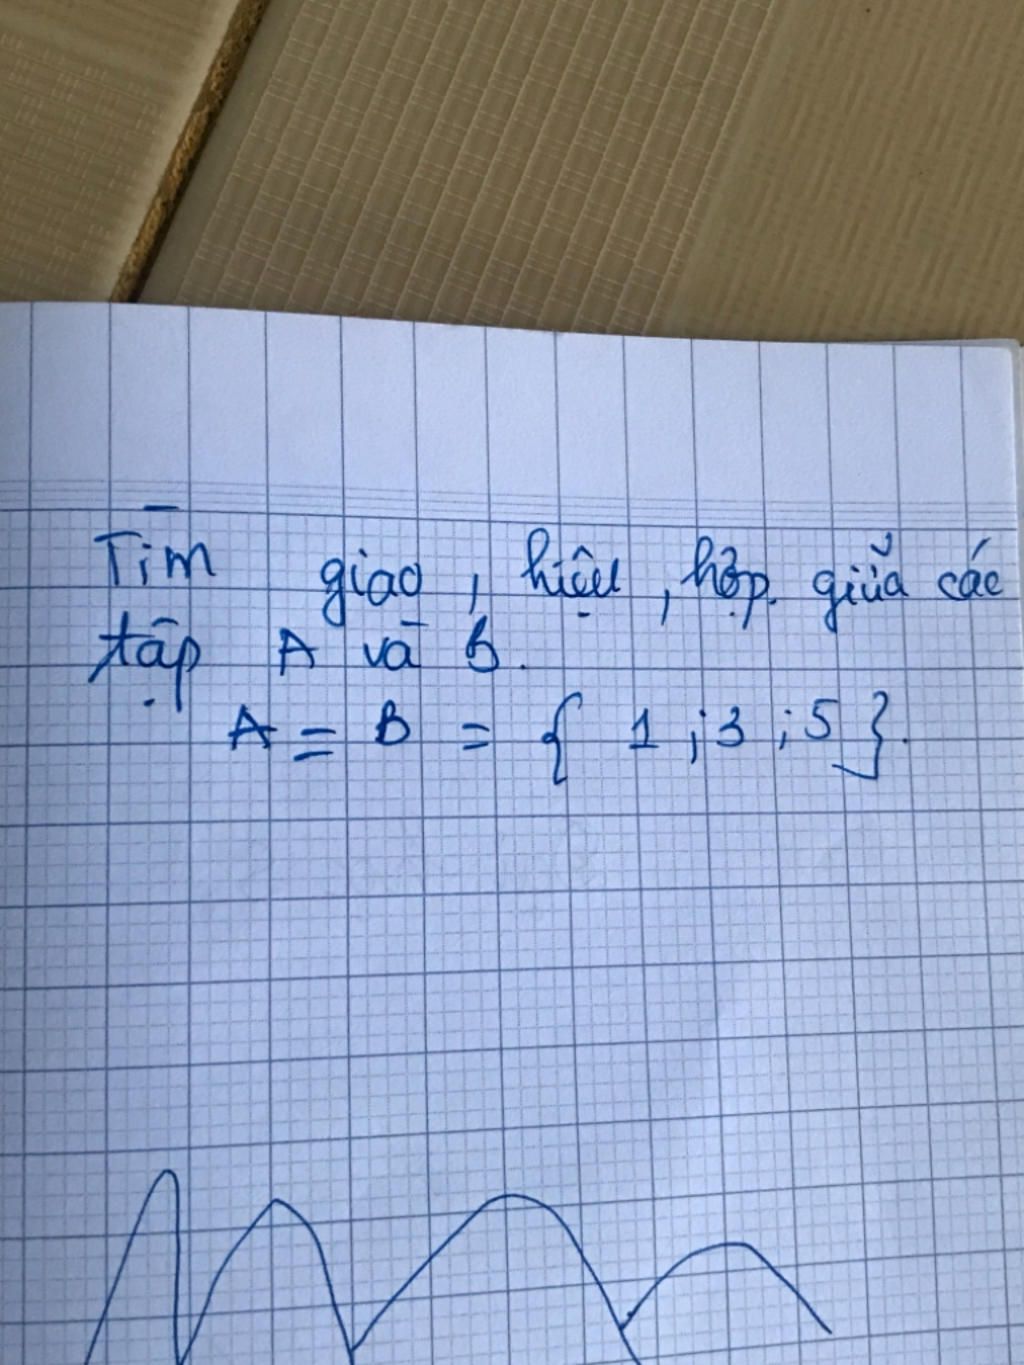 Tìm giao, hiệu, hợp giữa các
tập A và B.
A = B = { 1 ; 3 ; 5 }.